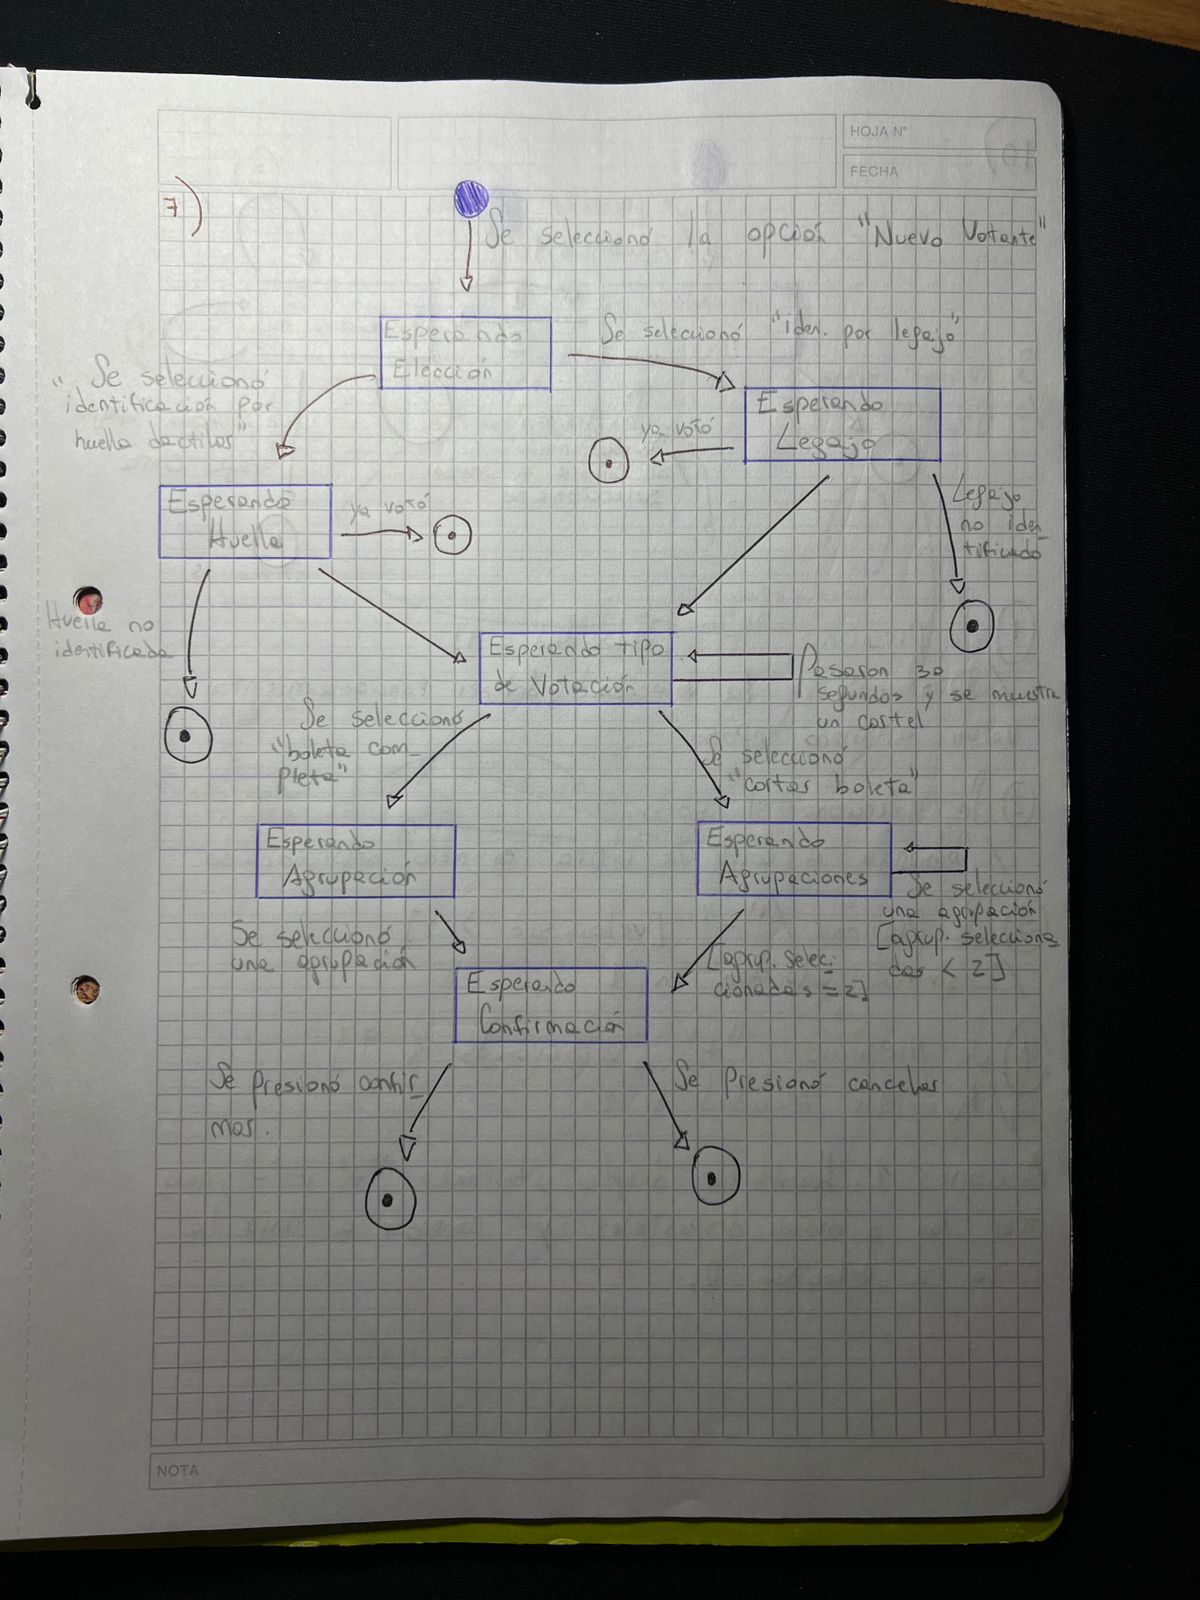 HOJA N°
FECHA
7)
Se seleccionó la opción "Nuevo Votante"
Esperando
Elección
Se seleccionó "iden. por legajo"
"Se seleccionó
identificación por
huella dactilar"
Esperando
Legajo
ya votó
Esperando
Huella
ya votó
Legajo
no iden_
tificado
Huella no
identificada
Esperando tipo
de Votación
Pasaron 30
segundos y se muestra
un cartel
Se seleccionó
"boleta com_
pleta"
Se seleccionó
"cortar boleta"
Esperando
Agrupación
Esperando
Agrupaciones
Se seleccionó
una agrupación
[agrup. selecciona
das < 2]
Se seleccionó
una agrupación
[agrup. selec_
cionadas = 2]
Esperando
Confirmación
Se Presionó confir_
mar.
Se Presionó cancelar
NOTA